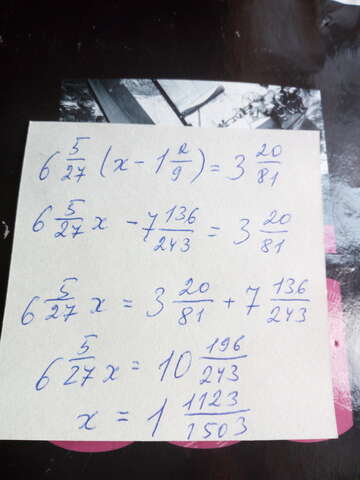 6 5/27 (x - 1 2/9) = 3 20/81
6 5/27 x - 7 136/243 = 3 20/81
6 5/27 x = 3 20/81 + 7 136/243
6 5/27 x = 10 196/243
x = 1 1123/1503